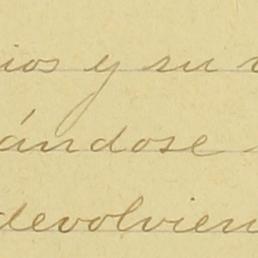 ios y su
ándose
devolvien